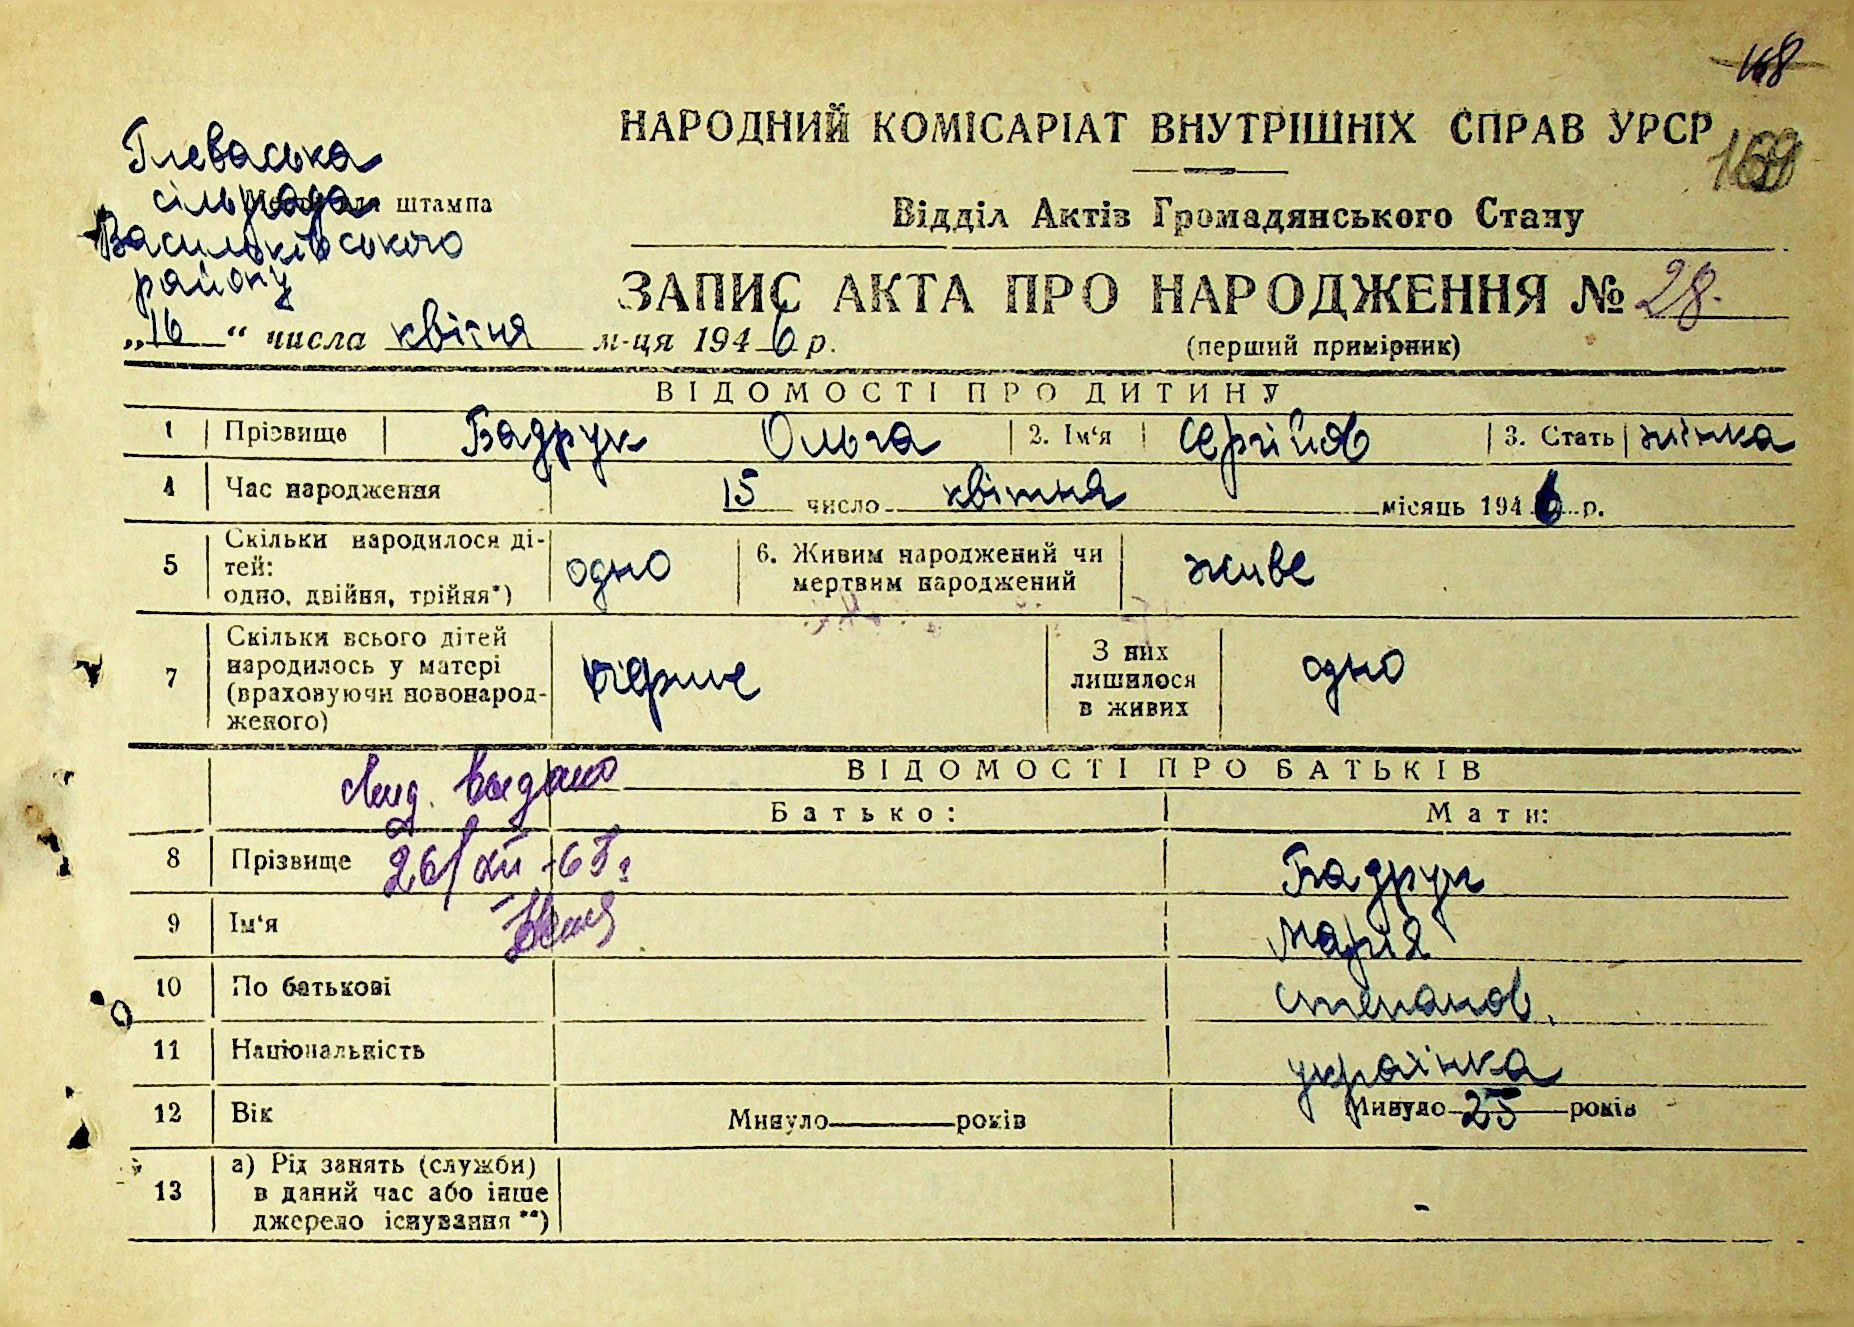 168
НАРОДНИЙ КОМІСАРІАТ ВНУТРІШНІХ СПРАВ УРСР
169
Глеваська
сільрада
штампа
Васильківського
району
Відділ Актів Громадянського Стану
ЗАПИС АКТА ПРО НАРОДЖЕННЯ № 28.
„16“ числа квітня м-ця 1946 р.
(перший примірник)
ВІДОМОСТІ ПРО ДИТИНУ
1 Прізвище Бадрук Ольга 2. Ім'я Сергійов 3. Стать жінка
4 Час народження 15 число квітня місяць 1946 р.
5 Скільки народилося ді-
тей:
одно, двійня, трійня*) одно 6. Живим народжений чи
мертвим народжений живе
7 Скільки всього дітей
народилось у матері
(враховуючи новонарод-
женого) перше З них
лишилося
в живих одно
ВІДОМОСТІ ПРО БАТЬКІВ
выдано
Батько: Мати:
8 Прізвище 26/XII-65г Бадрук
9 Ім'я Марія
10 По батькові Степанов.
11 Національність українка
12 Вік Минуло років Минуло 25 років
13 а) Рід занять (служби)
в даний час або інше
джерело існування **) -